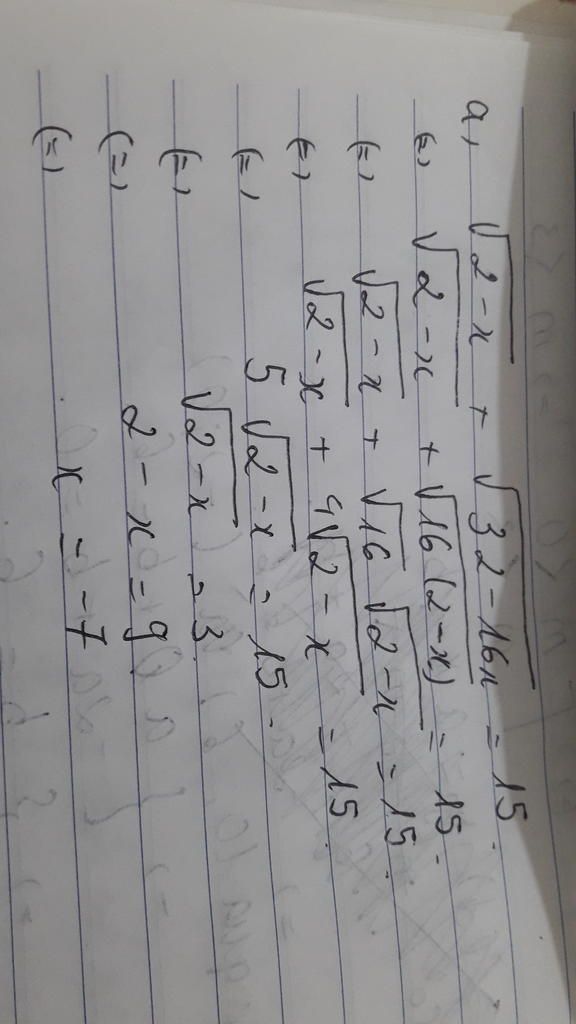 a, √(2-x) + √(32-16x) = 15.
(=) √(2-x) + √(16(2-x)) = 15.
(=) √(2-x) + √16 √(2-x) = 15.
(=) √(2-x) + 4√(2-x) = 15
(=) 5√(2-x) = 15.
(=) √(2-x) = 3
(=) 2-x = 9
(=) x = -7